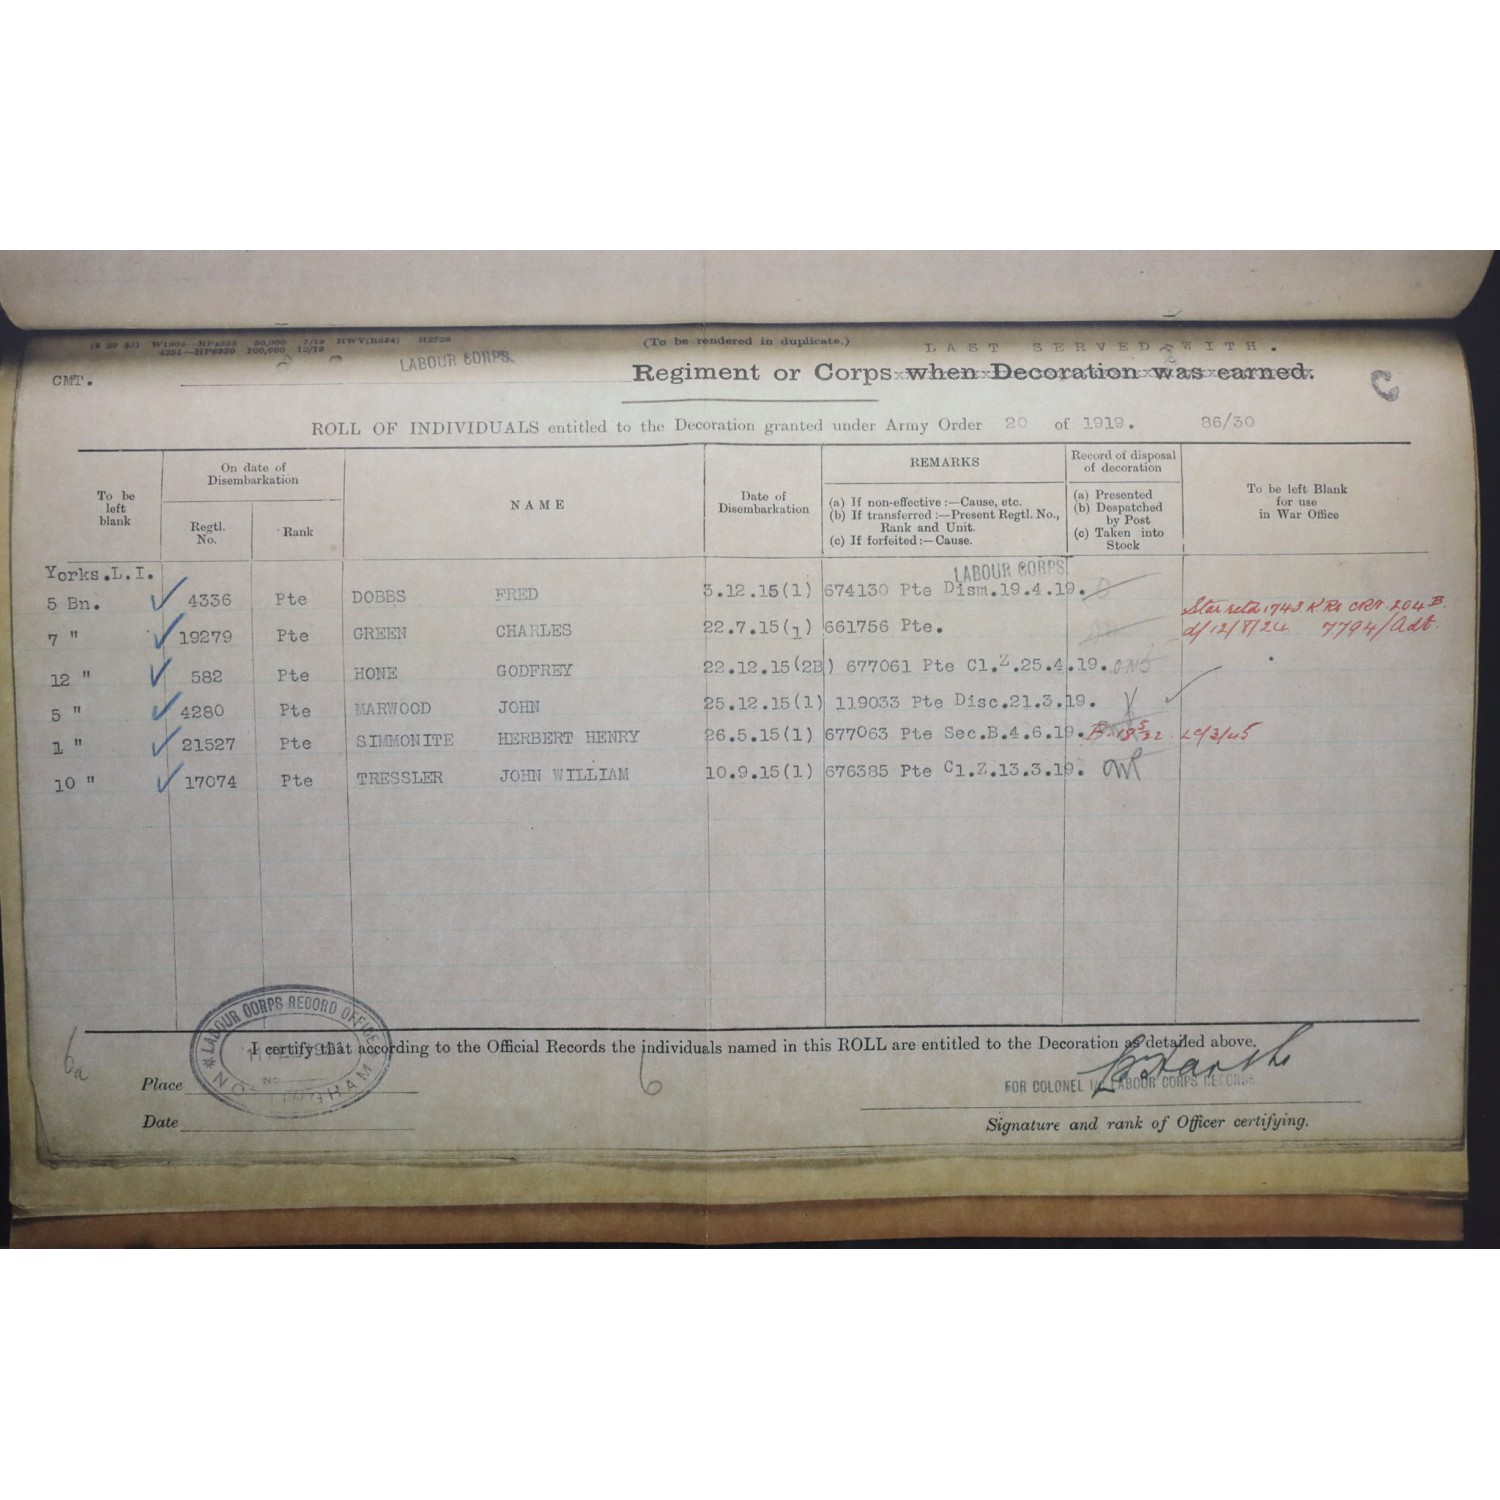 (To be rendered in duplicate.)
LAST SERVED WITH.
CMT.
LABOUR CORPS.
Regiment or Corps when Decoration was earned.
C
ROLL OF INDIVIDUALS entitled to the Decoration granted under Army Order 20 of 1919. 86/30
To be left blank
On date of Disembarkation
Regtl. No.
Rank
NAME
Date of Disembarkation
REMARKS
(a) If non-effective :—Cause, etc.
(b) If transferred :—Present Regtl. No., Rank and Unit.
(c) If forfeited :—Cause.
Record of disposal of decoration
(a) Presented
(b) Despatched by Post
(c) Taken into Stock
To be left Blank for use in War Office
Yorks.L.I.
LABOUR CORPS
5 Bn. 4336 Pte DOBBS FRED 3.12.15(1) 674130 Pte Dism.19.4.19.
7 " 19279 Pte GREEN CHARLES 22.7.15(1) 661756 Pte.
Star retd 1743 K Rs CRV 204 B.
d/12/8/24 7794/Adt.
12 " 582 Pte HONE GODFREY 22.12.15(2B) 677061 Pte Cl.Z.25.4.19.
5 " 4280 Pte MARWOOD JOHN 25.12.15(1) 119033 Pte Disc.21.3.19.
1 " 21527 Pte SIMMONITE HERBERT HENRY 26.5.15(1) 677063 Pte Sec.B.4.6.19.
10 " 17074 Pte TRESSLER JOHN WILLIAM 10.9.15(1) 676385 Pte Cl.Z.13.3.19.
LABOUR CORPS RECORD OFFICE
NOTTINGHAM
I certify that according to the Official Records the individuals named in this ROLL are entitled to the Decoration as detailed above.
6a
6
Place
FOR COLONEL I/C LABOUR CORPS RECORDS
Date
Signature and rank of Officer certifying.